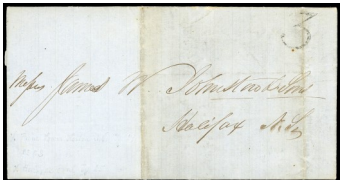 3
Messrs James W Johnston & Son
Halifax N.S.